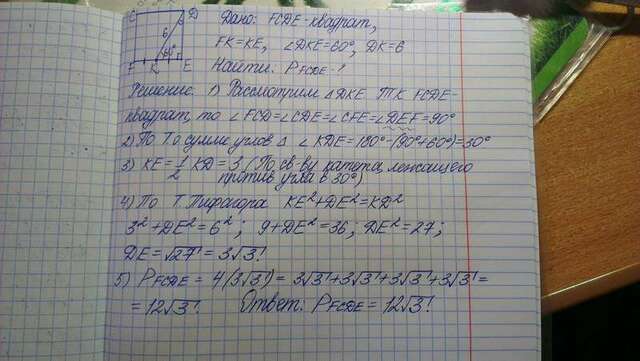 C D
6
60°
F K E
Дано: FCDE-квадрат,
FK=KE, ∠DKE=60°, DK=6
Найти: P FCDE-?
Решение: 1) Рассмотрим △DKE. Т.К. FCDE-
квадрат, то ∠FCD=∠CDE=∠CFE=∠DEF=90°
2) По Т. о сумме углов △ ∠KDE=180°-(90°+60°)=30°
3) KE=1/2 KD=3 (По св-ву катета, лежащего
против угла в 30°)
4) По Т. Пифагора KE²+DE²=KD²
3²+DE²=6²; 9+DE²=36; DE²=27;
DE=√27=3√3
5) P FCDE = 4(3√3)=3√3+3√3+3√3+3√3=
=12√3 Ответ: P FCDE=12√3